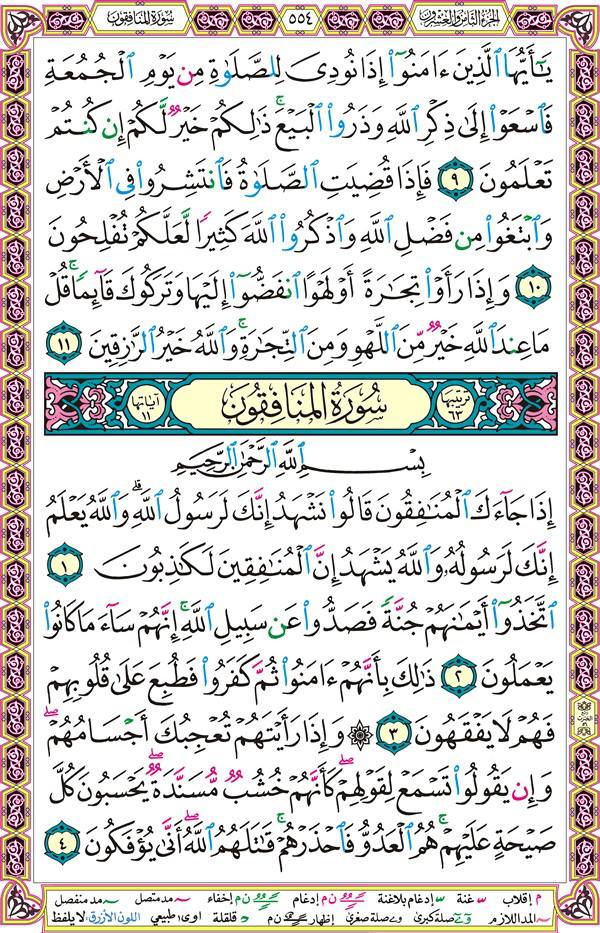 الجزء الثامن والعشرون ٥٥٤ سورة المنافقون
يَٰٓأَيُّهَا ٱلَّذِينَ ءَامَنُوٓا۟ إِذَا نُودِىَ لِلصَّلَوٰةِ مِن يَوْمِ ٱلْجُمُعَةِ
فَٱسْعَوْا۟ إِلَىٰ ذِكْرِ ٱللَّهِ وَذَرُوا۟ ٱلْبَيْعَ ۚ ذَٰلِكُمْ خَيْرٌ لَّكُمْ إِن كُنتُمْ
تَعْلَمُونَ ٩ فَإِذَا قُضِيَتِ ٱلصَّلَوٰةُ فَٱنتَشِرُوا۟ فِى ٱلْأَرْضِ
وَٱبْتَغُوا۟ مِن فَضْلِ ٱللَّهِ وَٱذْكُرُوا۟ ٱللَّهَ كَثِيرًا لَّعَلَّكُمْ تُفْلِحُونَ
١٠ وَإِذَا رَأَوْا۟ تِجَٰرَةً أَوْ لَهْوًا ٱنفَضُّوٓا۟ إِلَيْهَا وَتَرَكُوكَ قَآئِمًا ۚ قُلْ
مَا عِندَ ٱللَّهِ خَيْرٌ مِّنَ ٱللَّهْوِ وَمِنَ ٱلتِّجَٰرَةِ ۚ وَٱللَّهُ خَيْرُ ٱلرَّٰزِقِينَ ١١
ترتيبها ٦٣ سُورَةُ الْمُنَافِقُونَ آياتها ١١
بِسْمِ ٱللَّهِ ٱلرَّحْمَٰنِ ٱلرَّحِيمِ
إِذَا جَآءَكَ ٱلْمُنَٰفِقُونَ قَالُوا۟ نَشْهَدُ إِنَّكَ لَرَسُولُ ٱللَّهِ ۗ وَٱللَّهُ يَعْلَمُ
إِنَّكَ لَرَسُولُهُۥ وَٱللَّهُ يَشْهَدُ إِنَّ ٱلْمُنَٰفِقِينَ لَكَٰذِبُونَ ١
ٱتَّخَذُوٓا۟ أَيْمَٰنَهُمْ جُنَّةً فَصَدُّوا۟ عَن سَبِيلِ ٱللَّهِ ۚ إِنَّهُمْ سَآءَ مَا كَانُوا۟
يَعْمَلُونَ ٢ ذَٰلِكَ بِأَنَّهُمْ ءَامَنُوا۟ ثُمَّ كَفَرُوا۟ فَطُبِعَ عَلَىٰ قُلُوبِهِمْ
فَهُمْ لَا يَفْقَهُونَ ٣ ۞ وَإِذَا رَأَيْتَهُمْ تُعْجِبُكَ أَجْسَامُهُمْ ۖ
وَإِن يَقُولُوا۟ تَسْمَعْ لِقَوْلِهِمْ ۖ كَأَنَّهُمْ خُشُبٌ مُّسَنَّدَةٌ ۖ يَحْسَبُونَ كُلَّ
صَيْحَةٍ عَلَيْهِمْ ۚ هُمُ ٱلْعَدُوُّ فَٱحْذَرْهُمْ ۚ قَٰتَلَهُمُ ٱللَّهُ ۖ أَنَّىٰ يُؤْفَكُونَ ٤
م إقلاب غنة إدغام بلاغنة ن م إدغام ن م إخفاء مد متصل مد منفصل
المد اللازم صلة كبرى صلة صغرى إظهار ن م قلقلة اوى: طبيعي اللون الأزرق: لا يلفظ